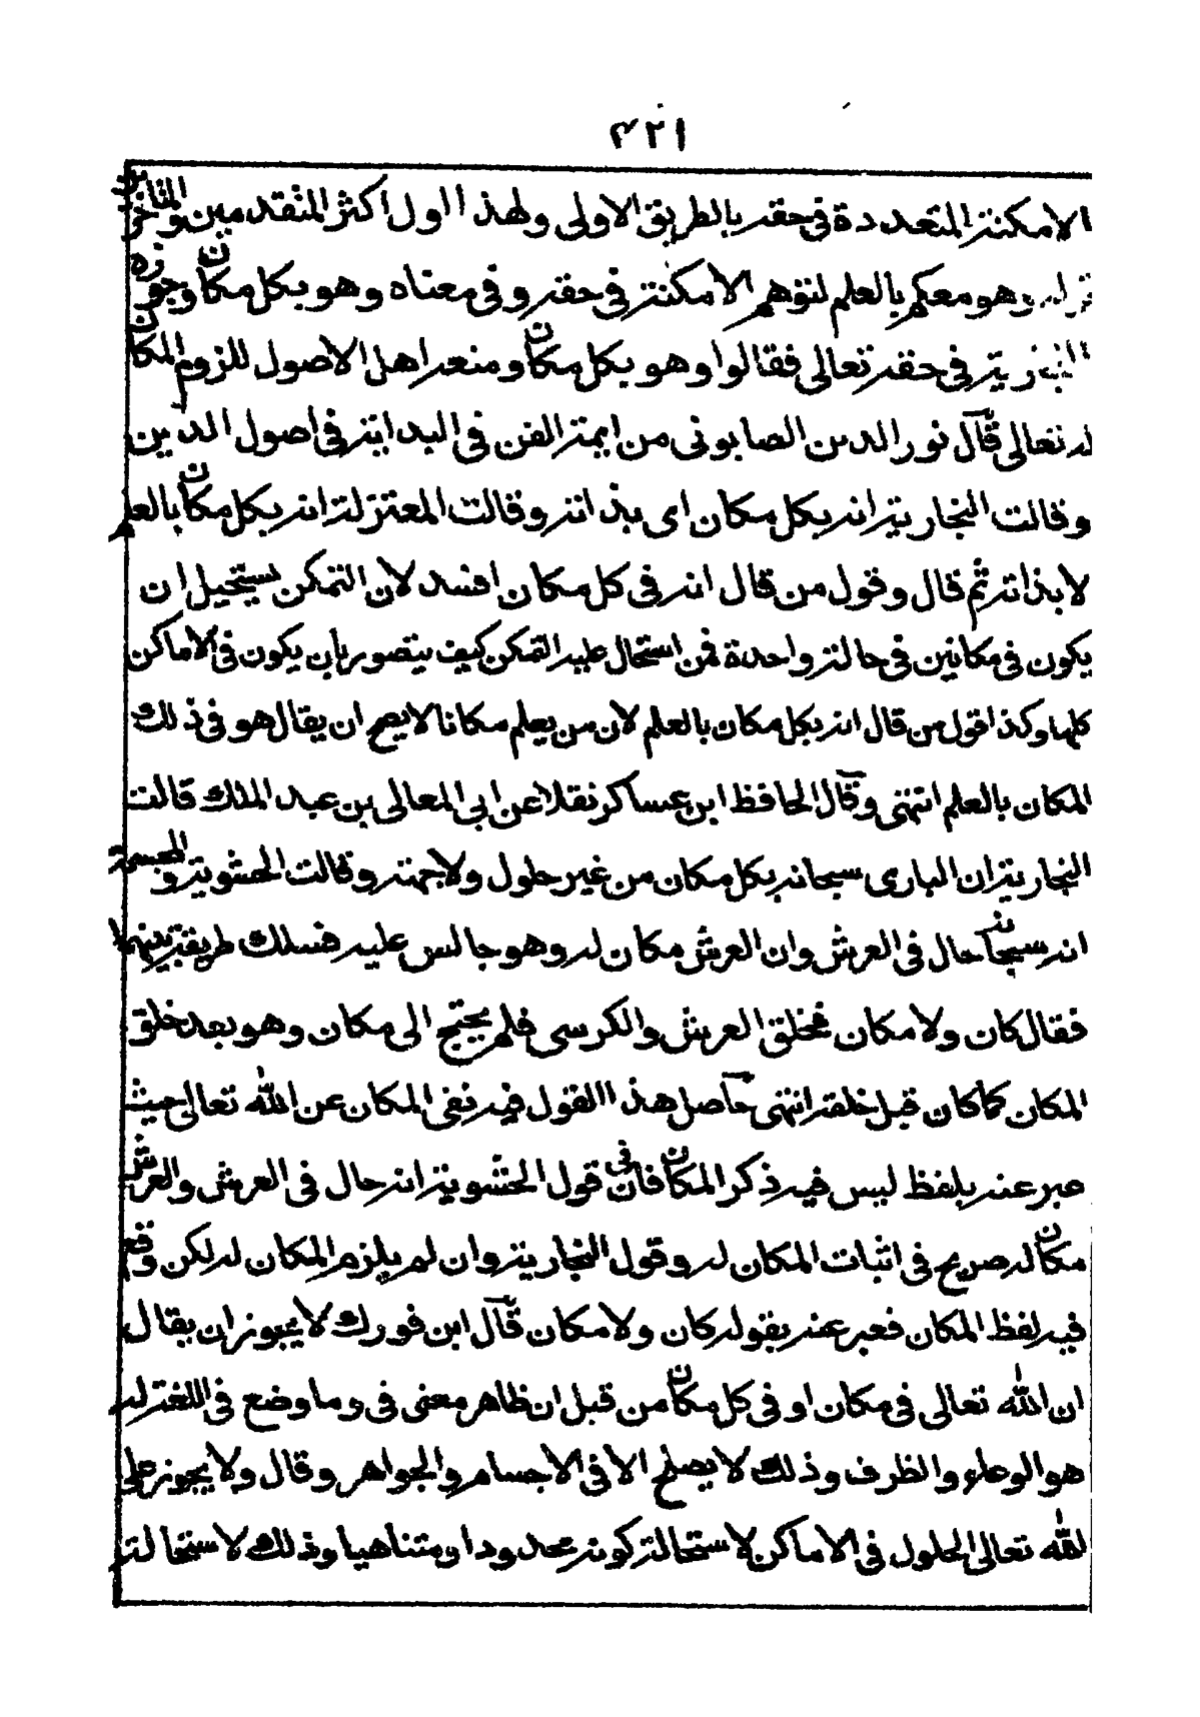 ٤٢١
الامكنة المتعددة فى حقه بالطريق الاولى ولهذا اول اكثر المتقدمين والمتاخرين
قوله وهو معكم بالعلم لتوهم الامكنة فى حقه وفى معناه وهو بكل مكان وجوزه
النجارية فى حقه تعالى فقالوا وهو بكل مكان ومنعه اهل الاصول للزوم المكان
له تعالى قال نور الدين الصابونى من ايمة الفن فى البداية فى اصول الدين
وقالت النجارية انه بكل مكان اى بذاته وقالت المعتزلة انه بكل مكان بالعلم
لا بذاته ثم قال وقول من قال انه فى كل مكان افسد لان التمكن يستحيل ان
يكون فى مكانين فى حالة واحدة فمن استحال عليه التمكن كيف يتصور بان يكون فى الاماكن
كلها وكذا قول من قال انه بكل مكان بالعلم لان من يعلم مكانا لا يصح ان يقال هو فى ذلك
المكان بالعلم انتهى وقال الحافظ ابن عساكر نقلا عن ابى المعالى بن عبد الملك قالت
النجارية ان البارى سبحانه بكل مكان من غير حلول ولا جهة وقالت الحشوية والمجسمة
انه سبحانه حال فى العرش وان العرش مكان له وهو جالس عليه فسلك طريقة بينهما
فقال كان ولا مكان فخلق العرش والكرسى فلم يحتج الى مكان وهو بعد خلق
المكان كما كان قبل خلقه انتهى حاصل هذا القول فيه نفى المكان عن الله تعالى حيث
عبر عنه بلفظ ليس فيه ذكر المكان فان فى قول الحشوية انه حال فى العرش والعرش
مكان له صريح فى اثبات المكان له وقول النجارية وان لم يلزم المكان له لكن وقع
فيه لفظ المكان فعبر عنه بقوله كان ولا مكان قال ابن فورك لا يجوز ان يقال
ان الله تعالى فى مكان او فى كل مكان من قبل ان ظاهر معنى فى وما وضع فى اللغة له
هو الوعاء والظرف وذلك لا يصلح الا فى الاجسام والجواهر وقال ولا يجوز على
الله تعالى الحلول فى الاماكن لاستحالة كونه محدودا ومتناهيا وذلك لاستحالة